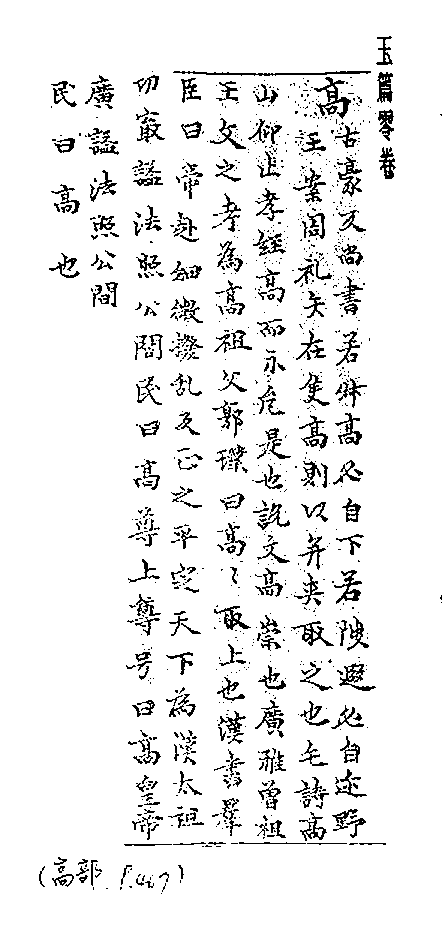 玉篇零卷
高 古豪反尚書若升高必自下若陟遐必自迩野
王案周礼矢在隻高則以并夾取之也毛詩高
山仰止孝經高而不危是也說文高崇也廣雅曾祖
王父之考為高祖父郭璞曰高〻取上也漢書羣
臣曰帝起細微撥乱反正之平定天下為漢太祖
功寂諡法照公閒民曰高尊上尊号曰高皇帝
廣諡法照公閒
民曰高也
(高部 P.467)